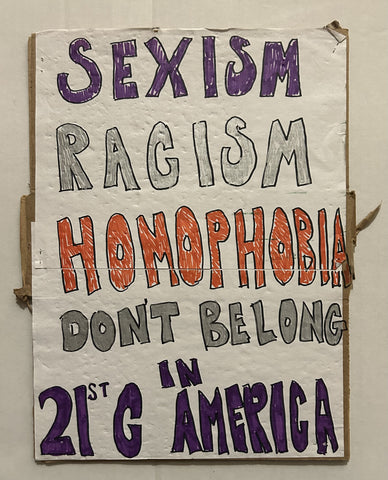 SEXISM
RACISM
HOMOPHOBIA
DON'T BELONG
IN
21ST C AMERICA